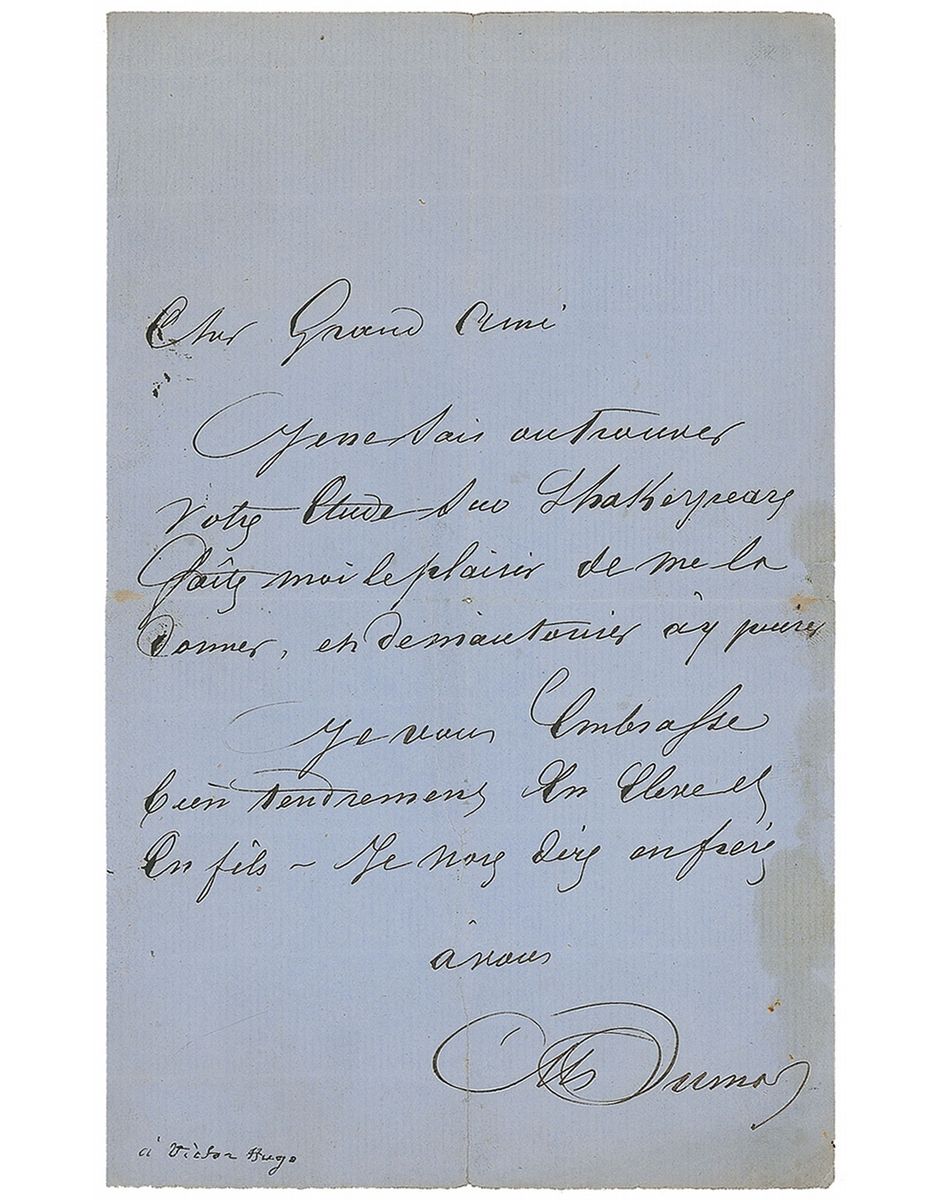 Cher Grand Ami
Je ne sais ou trouver
votre Etude sur Shakespeare
faîtes moi le plaisir de me la
donner, et de m'autoriser à y puiser
Je vous Embrasse
bien tendrement En Eleve et
En fils – Je nose dire en frere
à vous
Alex Dumas
à Victor Hugo